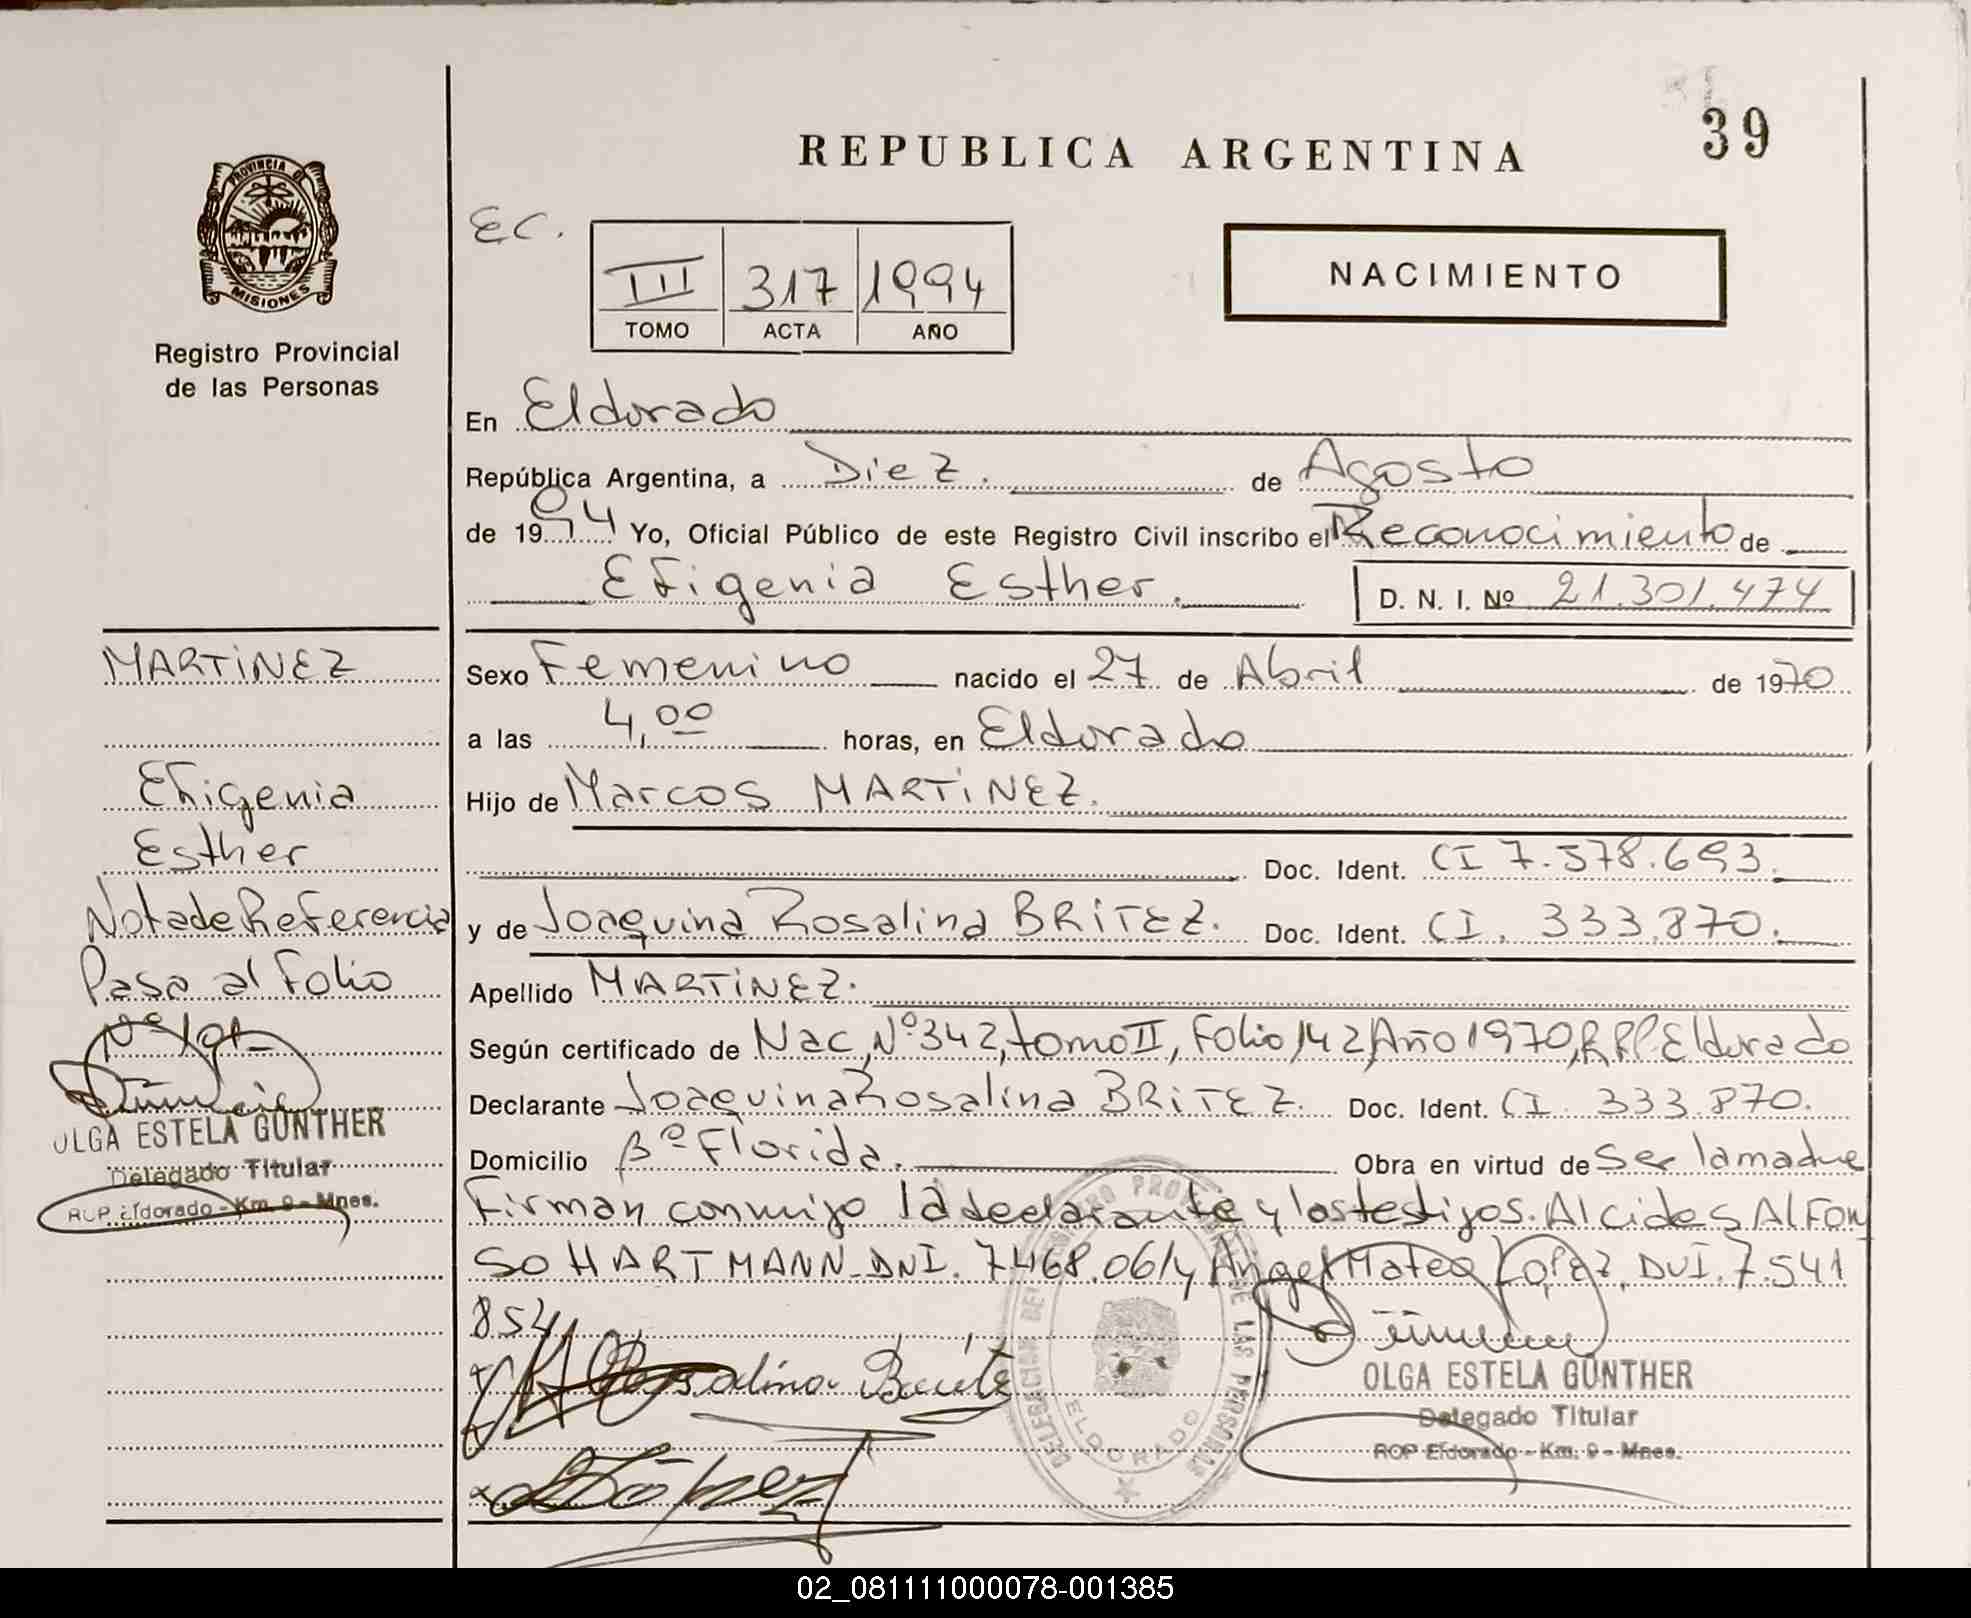 39
REPUBLICA ARGENTINA
PROVINCIA D
MISIONES
Registro Provincial
de las Personas
EC.
III 317 1994
TOMO ACTA AÑO
NACIMIENTO
En Eldorado
República Argentina, a Diez. de Agosto
de 1994 Yo, Oficial Público de este Registro Civil inscribo el Reconocimiento de
Efigenia Esther. D. N. I. Nº 21.301.474
Sexo Femenino nacido el 27 de Abril de 1970
a las 4,00 horas, en Eldorado
Hijo de Marcos MARTINEZ.
Doc. Ident. CI 7.578.693.
y de Joaquina Rosalina BRITEZ. Doc. Ident. CI. 333.870.
Apellido MARTINEZ.
Según certificado de Nac, Nº 342, tomo II, Folio 142, Año 1970, RPP Eldorado
Declarante Joaquina Rosalina BRITEZ. Doc. Ident. CI. 333.870.
Domicilio Bº Florida. Obra en virtud de Ser la madre
Firman conmigo la declarante y los testigos. Alcides Alfon
so HARTMANN-DNI. 7468.061 y Angel Mateo Lopez, DNI. 7.541
854
Rosalina
López
DELEGACION DEL REGISTRO PROVINCIAL DE LAS PERSONAS
ELDORADO
OLGA ESTELA GÜNTHER
Delegado Titular
RCP Eldorado - Km. 9 - Mnes.
MARTINEZ
Efigenia
Esther
Nota de Referencia
Pasa al Folio
Nº 191
OLGA ESTELA GÜNTHER
Delegado Titular
RCP Eldorado - Km. 9 - Mnes.
02_081111000078-001385